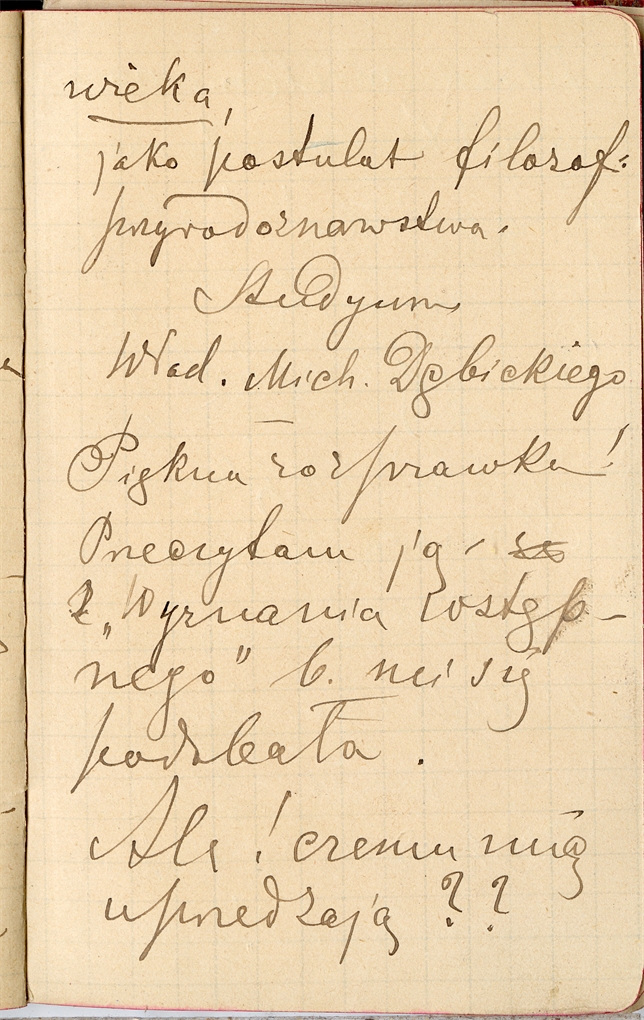 wieka,
jako postulat filozof:
przyrodoznawstwa.
Studyum
Wład. Mich. Dębickiego
Piękna rozprawka!
Przeczytam ją
z „Wyznania
nego" b. mi się
podobała.
Ale! czemu mię
uprzedzają??